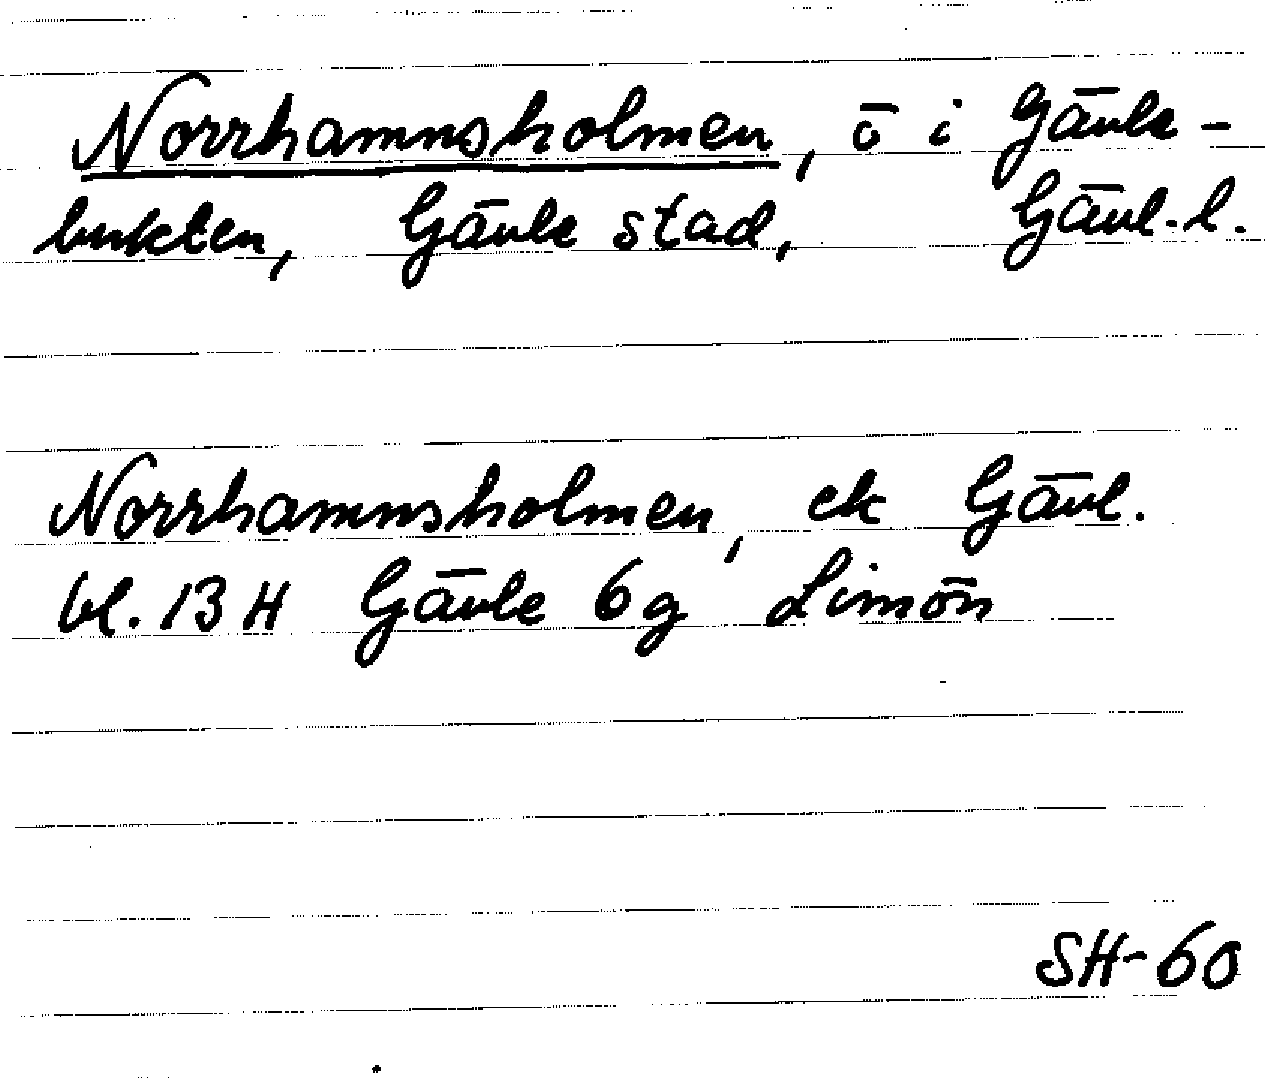 Norrhamnsholmen, ö i Gävle-
bukten, Gävle stad, Gävl.l.
Norrhamnsholmen, ek Gävl.
bl. 13H Gävle 6g Limön
SH-60